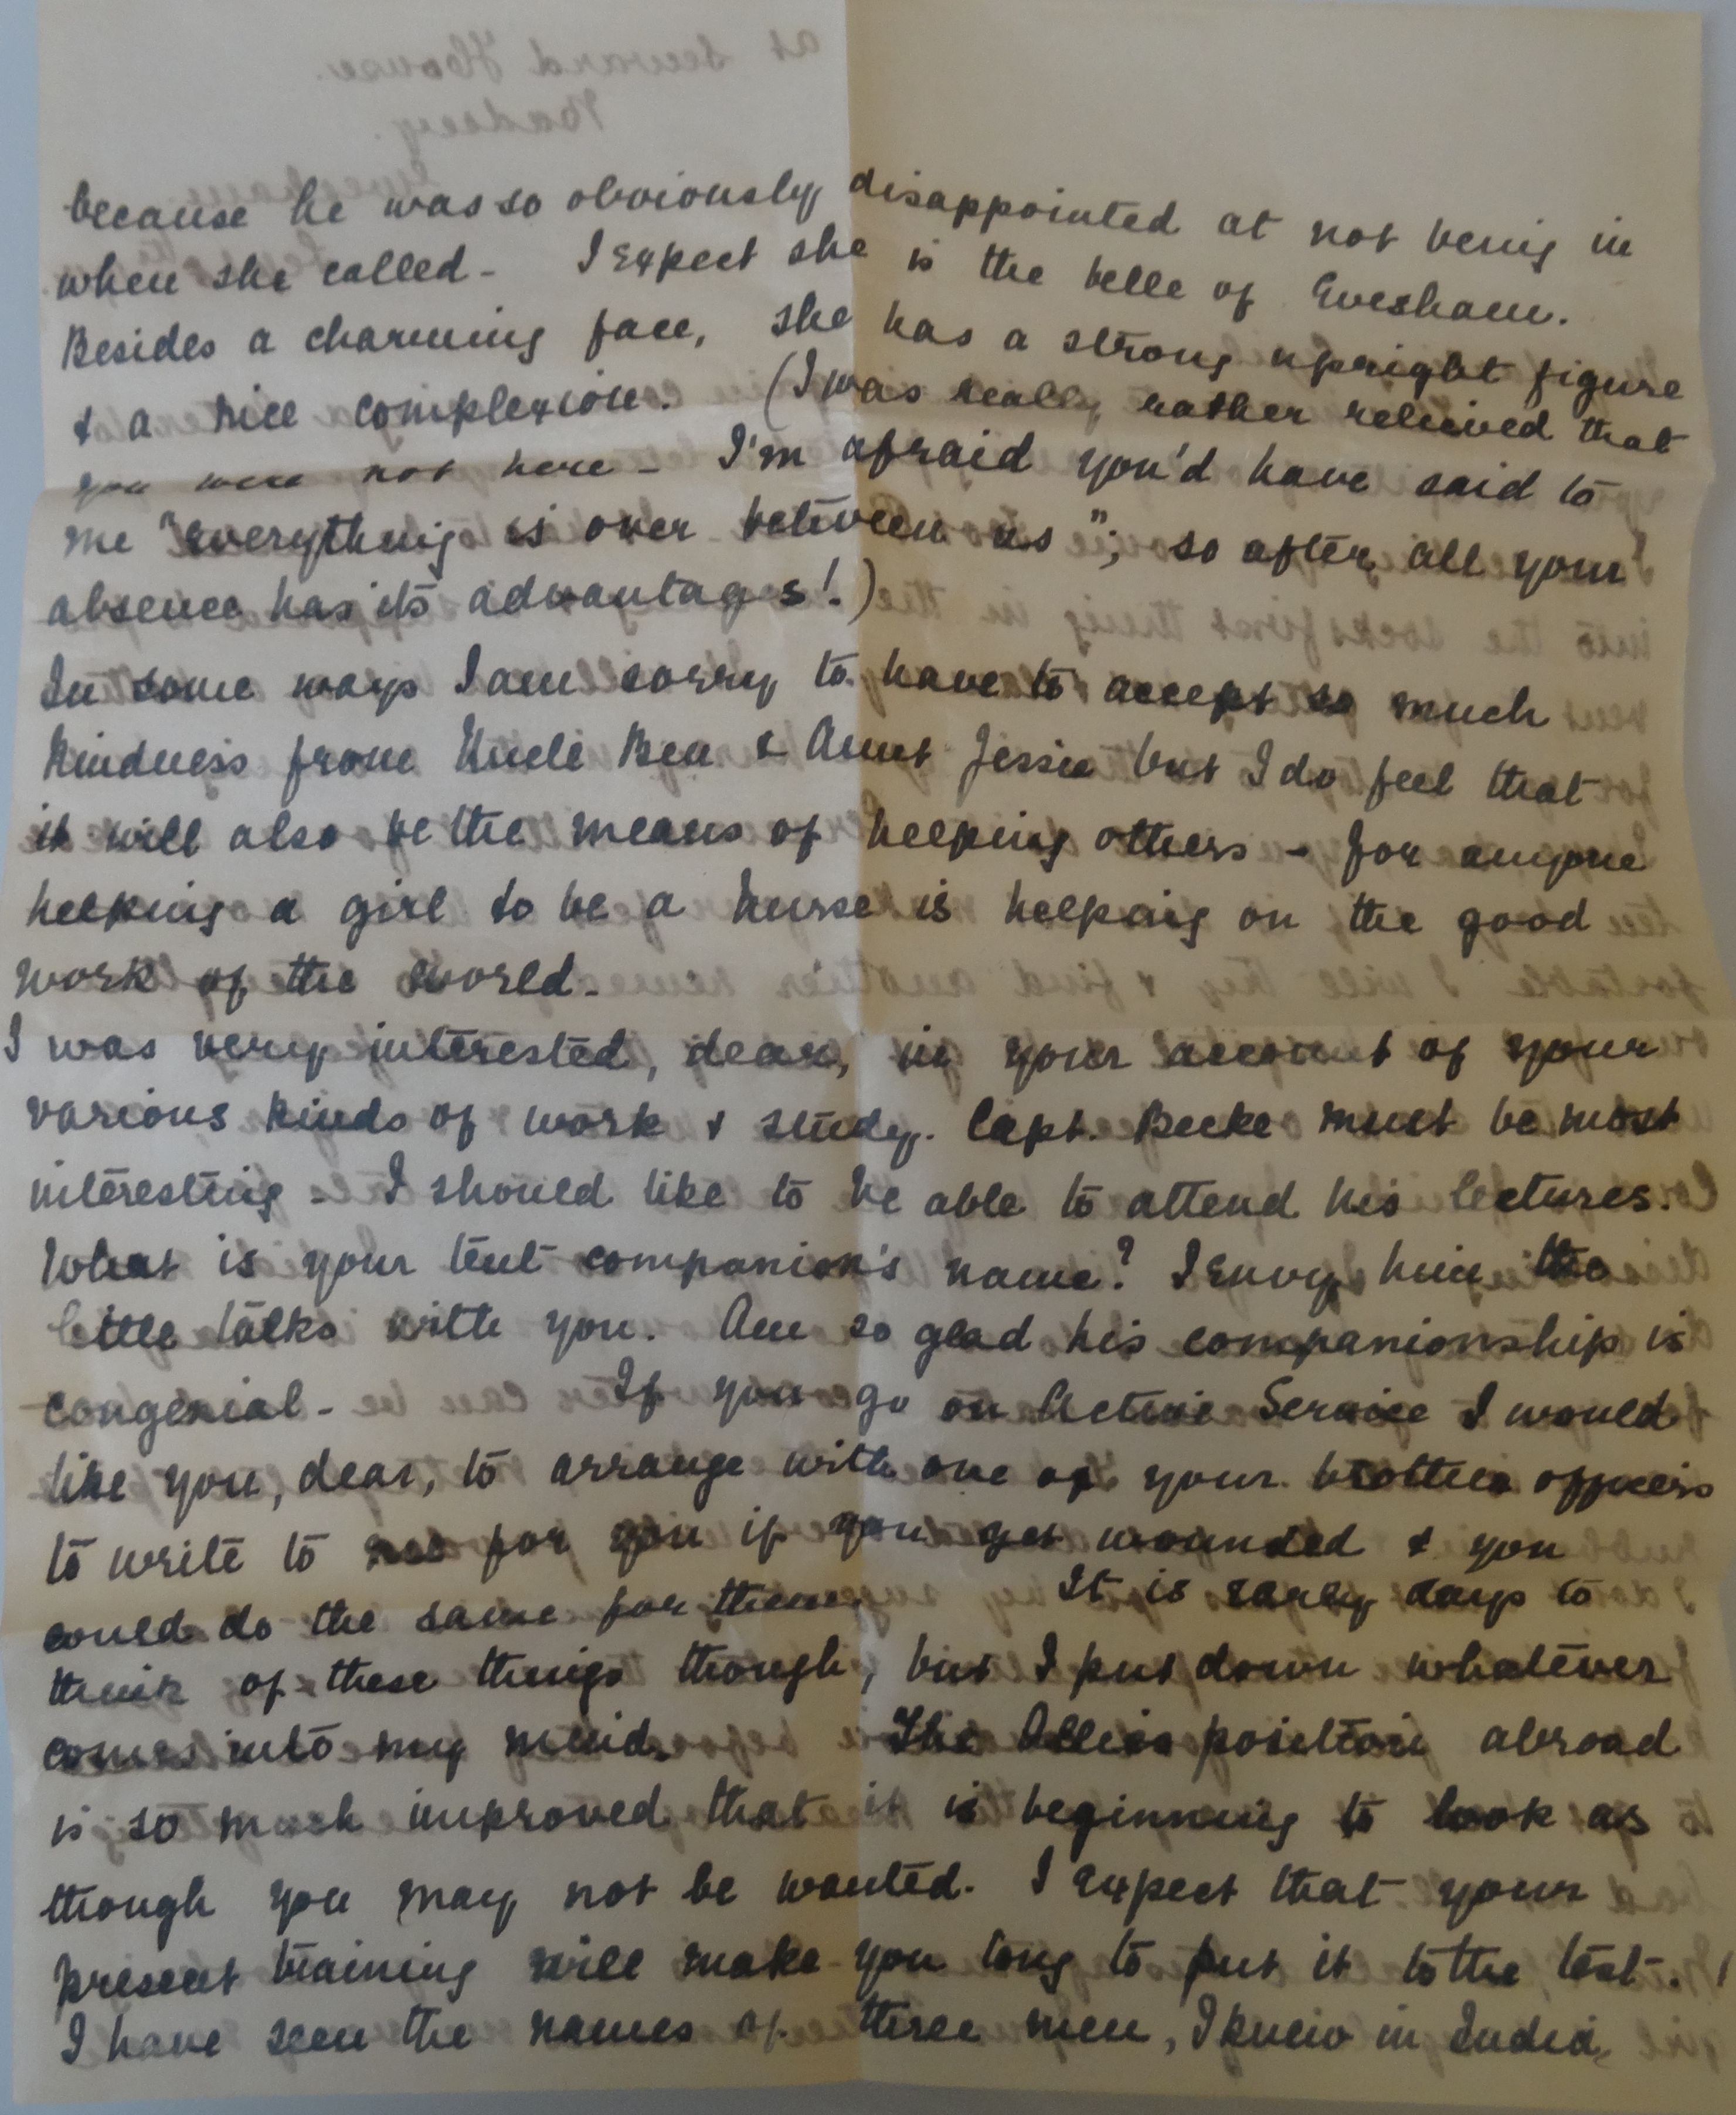 because he was so obviously disappointed at not being in
when she called - I expect she is the belle of Evesham.
Besides a charming face, she has a strong upright figure
& a nice complexion. (I was really rather relieved that
you were not here - I'm afraid you'd have said to
me "everything is over between us"; so after all your
absence has its advantages!)
In some ways I am sorry to have to accept so much
kindness from Uncle Ben & Aunt Jessie but I do feel that
it will also be the means of helping others - for anyone
helping a girl to be a nurse is helping on the good
work of the world.
I was very interested, dear, in your account of your
various kinds of work & study. Capt. Becke must be most
interesting - I should like to be able to attend his lectures.
What is your tent companion's name? I envy him the
little talks with you. Am so glad his companionship is
congenial - If you go on Active Service I would
like you, dear, to arrange with one of your brother officers
to write to me for you if you get wounded & you
could do the same for them. It is early days to
think of these things though, but I put down whatever
comes into my mind. The Allies position abroad
is so much improved that it is beginning to look as
though you may not be wanted. I expect that your
present training will make you long to put it to the test.
I have seen the names of three men, I knew in India,